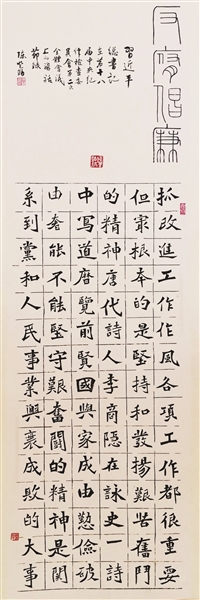 反腐倡廉
習近平
總書記
在第十八
屆中央紀
律檢查委
員會第二次
全體會議
上的講話
節
陳
抓改進工作作風各項工作都很重要
但最根本的是堅持和發揚艱苦奮鬥
的精神唐代詩人李商隱在詠史一詩
中寫道歷覽前賢國與家成由勤儉破
由奢能不能堅守艱奮鬪的精神是関
系到黨和人民事業興衰成敗的大事